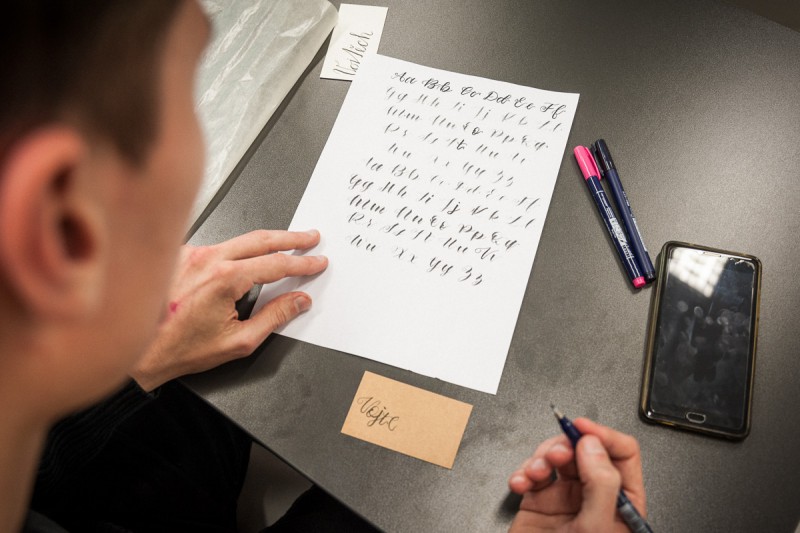 Aa Bb Cc Dd Ee Ff
Gg Hh Ii Jj Kk Ll
Mm Nn Oo Pp Qq
Rr Ss Tt Uu Vv
Ww Xx Yy Zz
Aa Bb Cc Dd Ee Ff
Gg Hh Ii Jj Kk Ll
Mm Nn Oo Pp Qq
Rr Ss Tt Uu Vv
Ww Xx Yy Zz